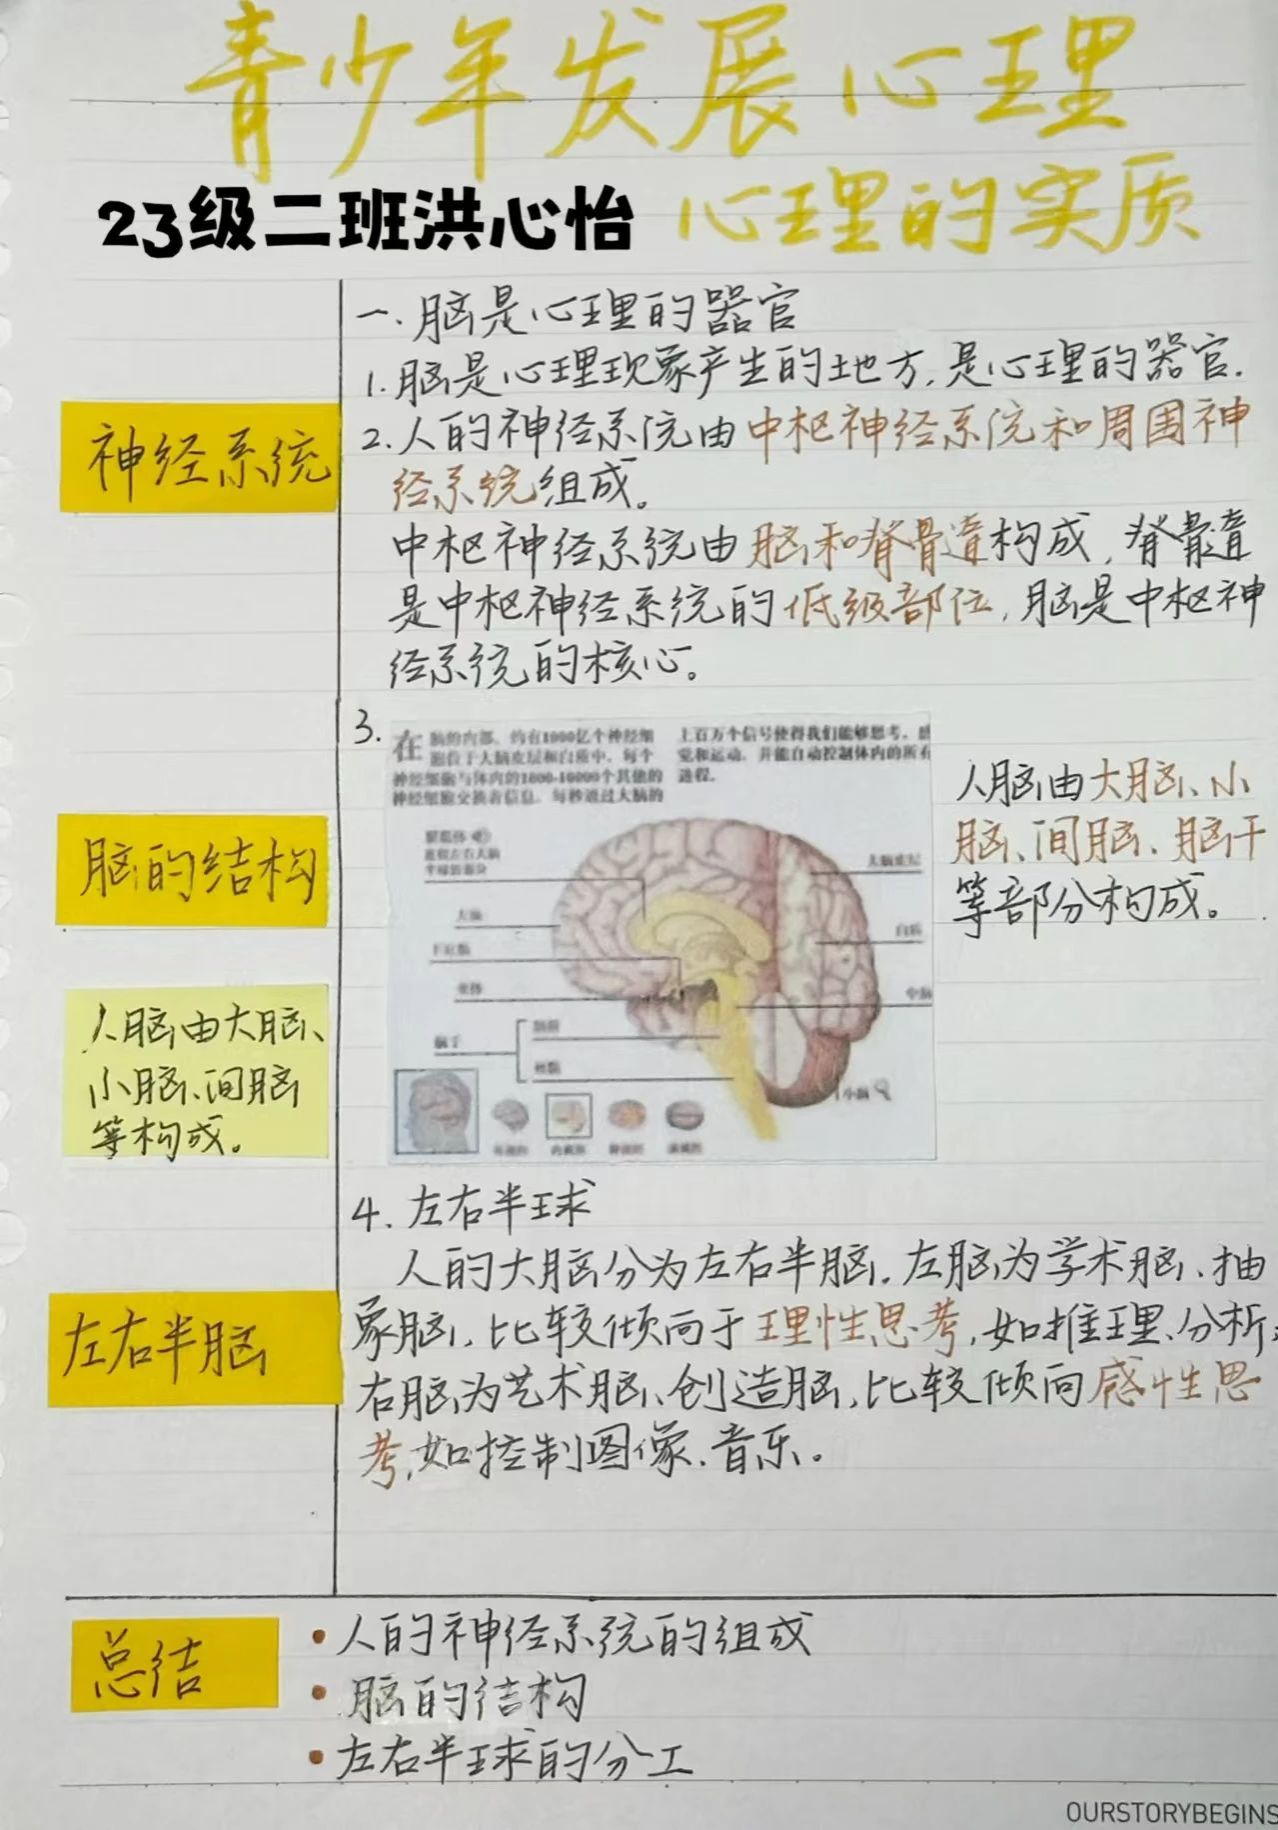 青少年发展心理
23级二班洪心怡 心理的实质
一.脑是心理的器官
1.脑是心理现象产生的地方,是心理的器官.
神经系统
2.人的神经系统由中枢神经系统和周围神
经系统组成。
中枢神经系统由脑和脊骨髓构成,脊髓
是中枢神经系统的低级部位,脑是中枢神
经系统的核心。
脑的结构
人脑由大脑、
小脑、间脑
等构成。
3.
在脑的内部,约有1000亿个神经细
胞位于大脑皮层和白质中。每个
神经细胞与体内的1000-10000个其他的
神经细胞交换着信息。每秒通过大脑的
上百万个信号使得我们能够思考、感
觉和运动,并能自动控制体内的所有
进程。
胼胝体
连接左右大脑
半球的部分
大脑
下丘脑
垂体
脑干
脑桥
大脑皮层
白质
中脑
小脑
人脑由大脑、小
脑、间脑、脑干
等部分构成。
左右半脑
4.左右半球
人的大脑分为左右半脑.左脑为学术脑、抽
象脑,比较倾向于理性思考,如推理、分析;
右脑为艺术脑、创造脑,比较倾向感性思
考,如控制图像、音乐。
总结
•人的神经系统的组成
•脑的结构
•左右半球的分工
OURSTORYBEGINS